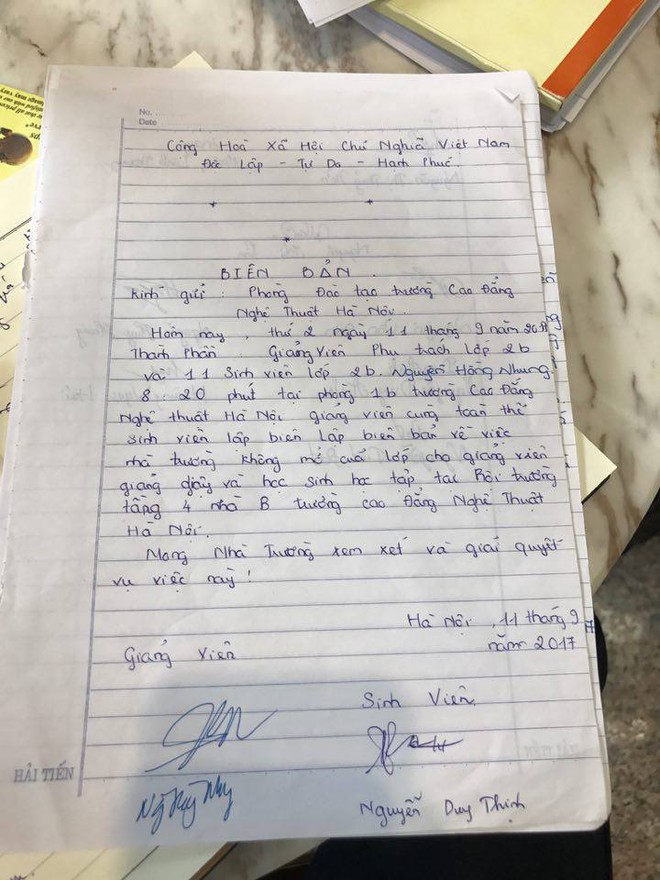 No.
Date
Công Hoà Xã Hội Chủ Nghĩa Việt Nam
Độc Lập - Tự Do - Hạnh Phúc.
BIÊN BẢN.
Kính gửi : Phòng Đào tạo trường Cao Đẳng
Nghệ Thuật Hà Nội.
Hôm nay, thứ 2 ngày 11 tháng 9 năm 2017
Thành Phần Giảng Viên Phụ trách lớp 2b
và 11 Sinh viên lớp 2b. Nguyễn Hồng Nhung
8 20 phút tại phòng 1b trường Cao Đẳng
Nghệ thuật Hà Nội giảng viên cùng toàn thể
sinh viên lập biên lập biên bản về việc
nhà trường không mở cửa lớp cho giảng viên
giảng dạy và học sinh học tập tại Hội trường
tầng 4 nhà B trường cao Đẳng Nghệ Thuật
Hà Nội.
Mong Nhà Trường xem xét và giải quyết
vụ việc này!
Hà Nội, 11 tháng 9
năm 2017
Giảng Viên
Sinh Viên
HẢI TIẾN
Nguyễn Duy Thịnh